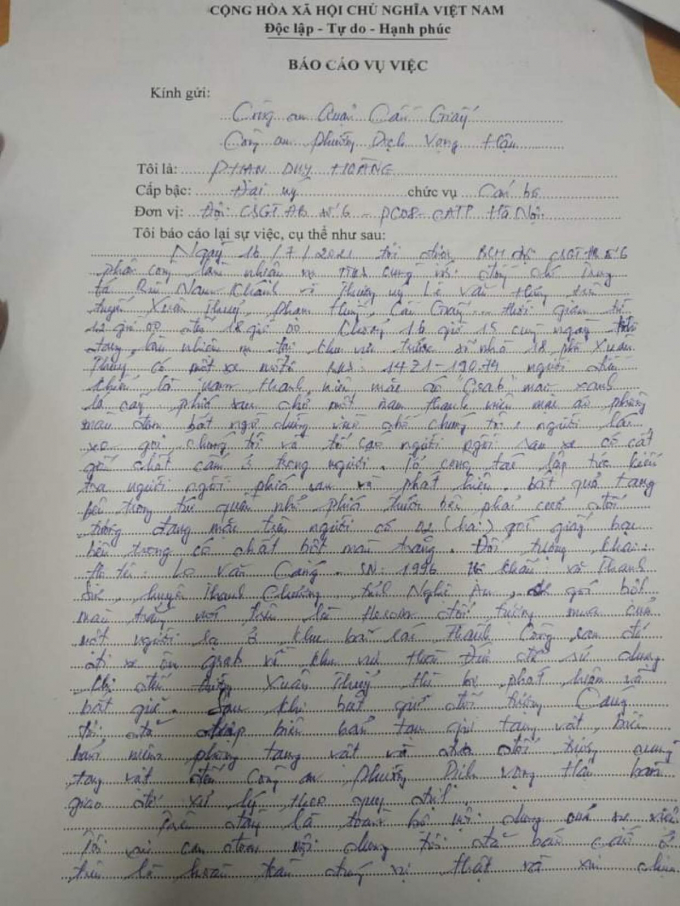 CỘNG HÒA XÃ HỘI CHỦ NGHĨA VIỆT NAM
Độc lập - Tự do - Hạnh phúc
BÁO CÁO VỤ VIỆC
Kính gửi:
Công an Quận Cầu Giấy
Công an Phường Dịch Vọng Hậu
Tôi là: PHAN DUY HOÀNG
Cấp bậc: Đại uý chức vụ Cán bộ
Đơn vị: Đội CSGT ĐB số 6 - PC08 - CATP Hà Nội
Tôi báo cáo lại sự việc, cụ thể như sau:
Ngày 16/7/2021 tôi được BCH đội CSGT ĐB số 6
phân công làm nhiệm vụ cùng với đồng chí Trung
tá Nam Khánh và Thượng uý Lê Văn trên
tuyến Xuân Thuỷ, Phạm Hùng, Cầu Giấy thời gian từ
12 giờ 00 đến 18 giờ 00. Khoảng 16 giờ 15 cùng ngày
đang làm nhiệm vụ tại khu vực trước số nhà 18 phố Xuân
Thủy có một xe môtô BKS: 14Z1-190.79 người điều
khiển là nam thanh niên mặc áo Grab màu xanh
lá cây, phía sau chở một nam thanh niên mặc áo phông
màu đen bất ngờ dừng xe chúng tôi, người lái
xe gọi chúng tôi và tố cáo người ngồi sau xe có cất
giấu chất cấm ở trong người. Tổ công tác lập tức kiểm
tra người ngồi phía sau và phát hiện, bắt quả tang
bên trong túi quần nhỏ phía trước bên phải đối
tượng đang mặc trên người có 02 (hai) gói giấy bạc
bên trong có chất bột màu trắng. Đối tượng khai:
Họ tên: Lê Văn Cảng. SN: 1996 Hộ khẩu: xã Thanh
huyện Thanh Chương, tỉnh Nghệ An, gói bột
màu trắng trên là Heroin đối tượng mua của
một người lạ ở khu bãi rác Thành Công sau đó
đi xe ôm grab về khu vực để sử dụng
Khi đến đường Xuân Thuỷ thì bị phát hiện và
bắt giữ. Sau khi bắt giữ đối tượng Cảng
tôi đã lập biên bản tạm giữ tang vật, biên
bản niêm phong tang vật và đưa đối tượng cùng
tang vật đến Công an phường Dịch Vọng Hậu bàn
giao để xử lý theo quy định.
Trên đây là toàn bộ nội dung của sự việc
Tôi xin cam đoan nội dung tôi đã báo cáo ở
trên là hoàn toàn đúng sự thật và xin chịu